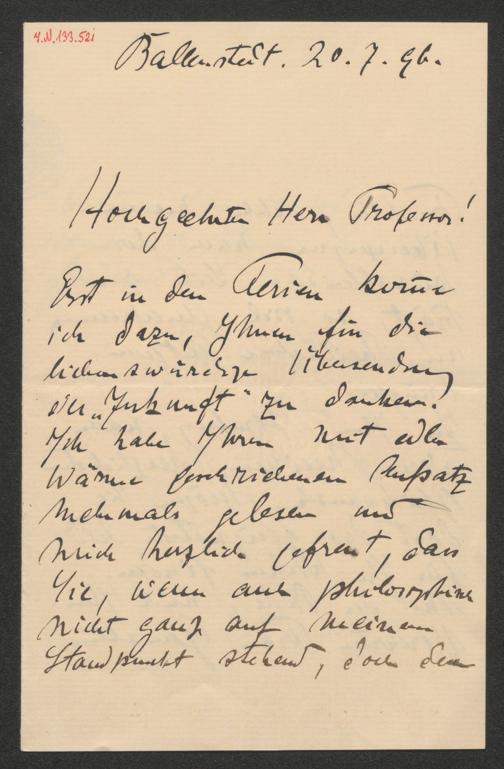 4.N.133.521
Ballenstedt. 20. 7. 96.
Hochgeehrter Herr Professor!
Erst in den Ferien komme
ich dazu, Ihnen für die
liebenswürdige Übersendung
der „Zukunft“ zu danken.
Ich habe Ihren mit edler
Wärme geschriebenen Aufsatz
mehrmals gelesen und
mich herzlich gefreut, dass
Sie, wenn auch philosophisch
nicht ganz auf meinem
Standpunkt stehend, doch dem